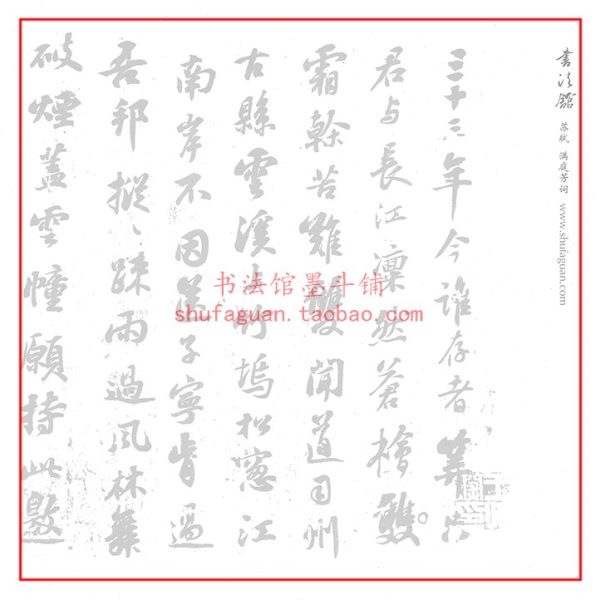 书法館 苏轼 满庭芳词 www.shufaguan.com
三十三年今誰存者算只
君与長江凜然蒼檜雙
霜幹苦難雙聞道司州
古縣雲溪上竹塢松窓江
南岸不因送子寧肯過
吾邦摐々踈雨過風林舞
破煙蓋雲幢願持此邀
书法馆墨斗铺
shufaguan.taobao.com